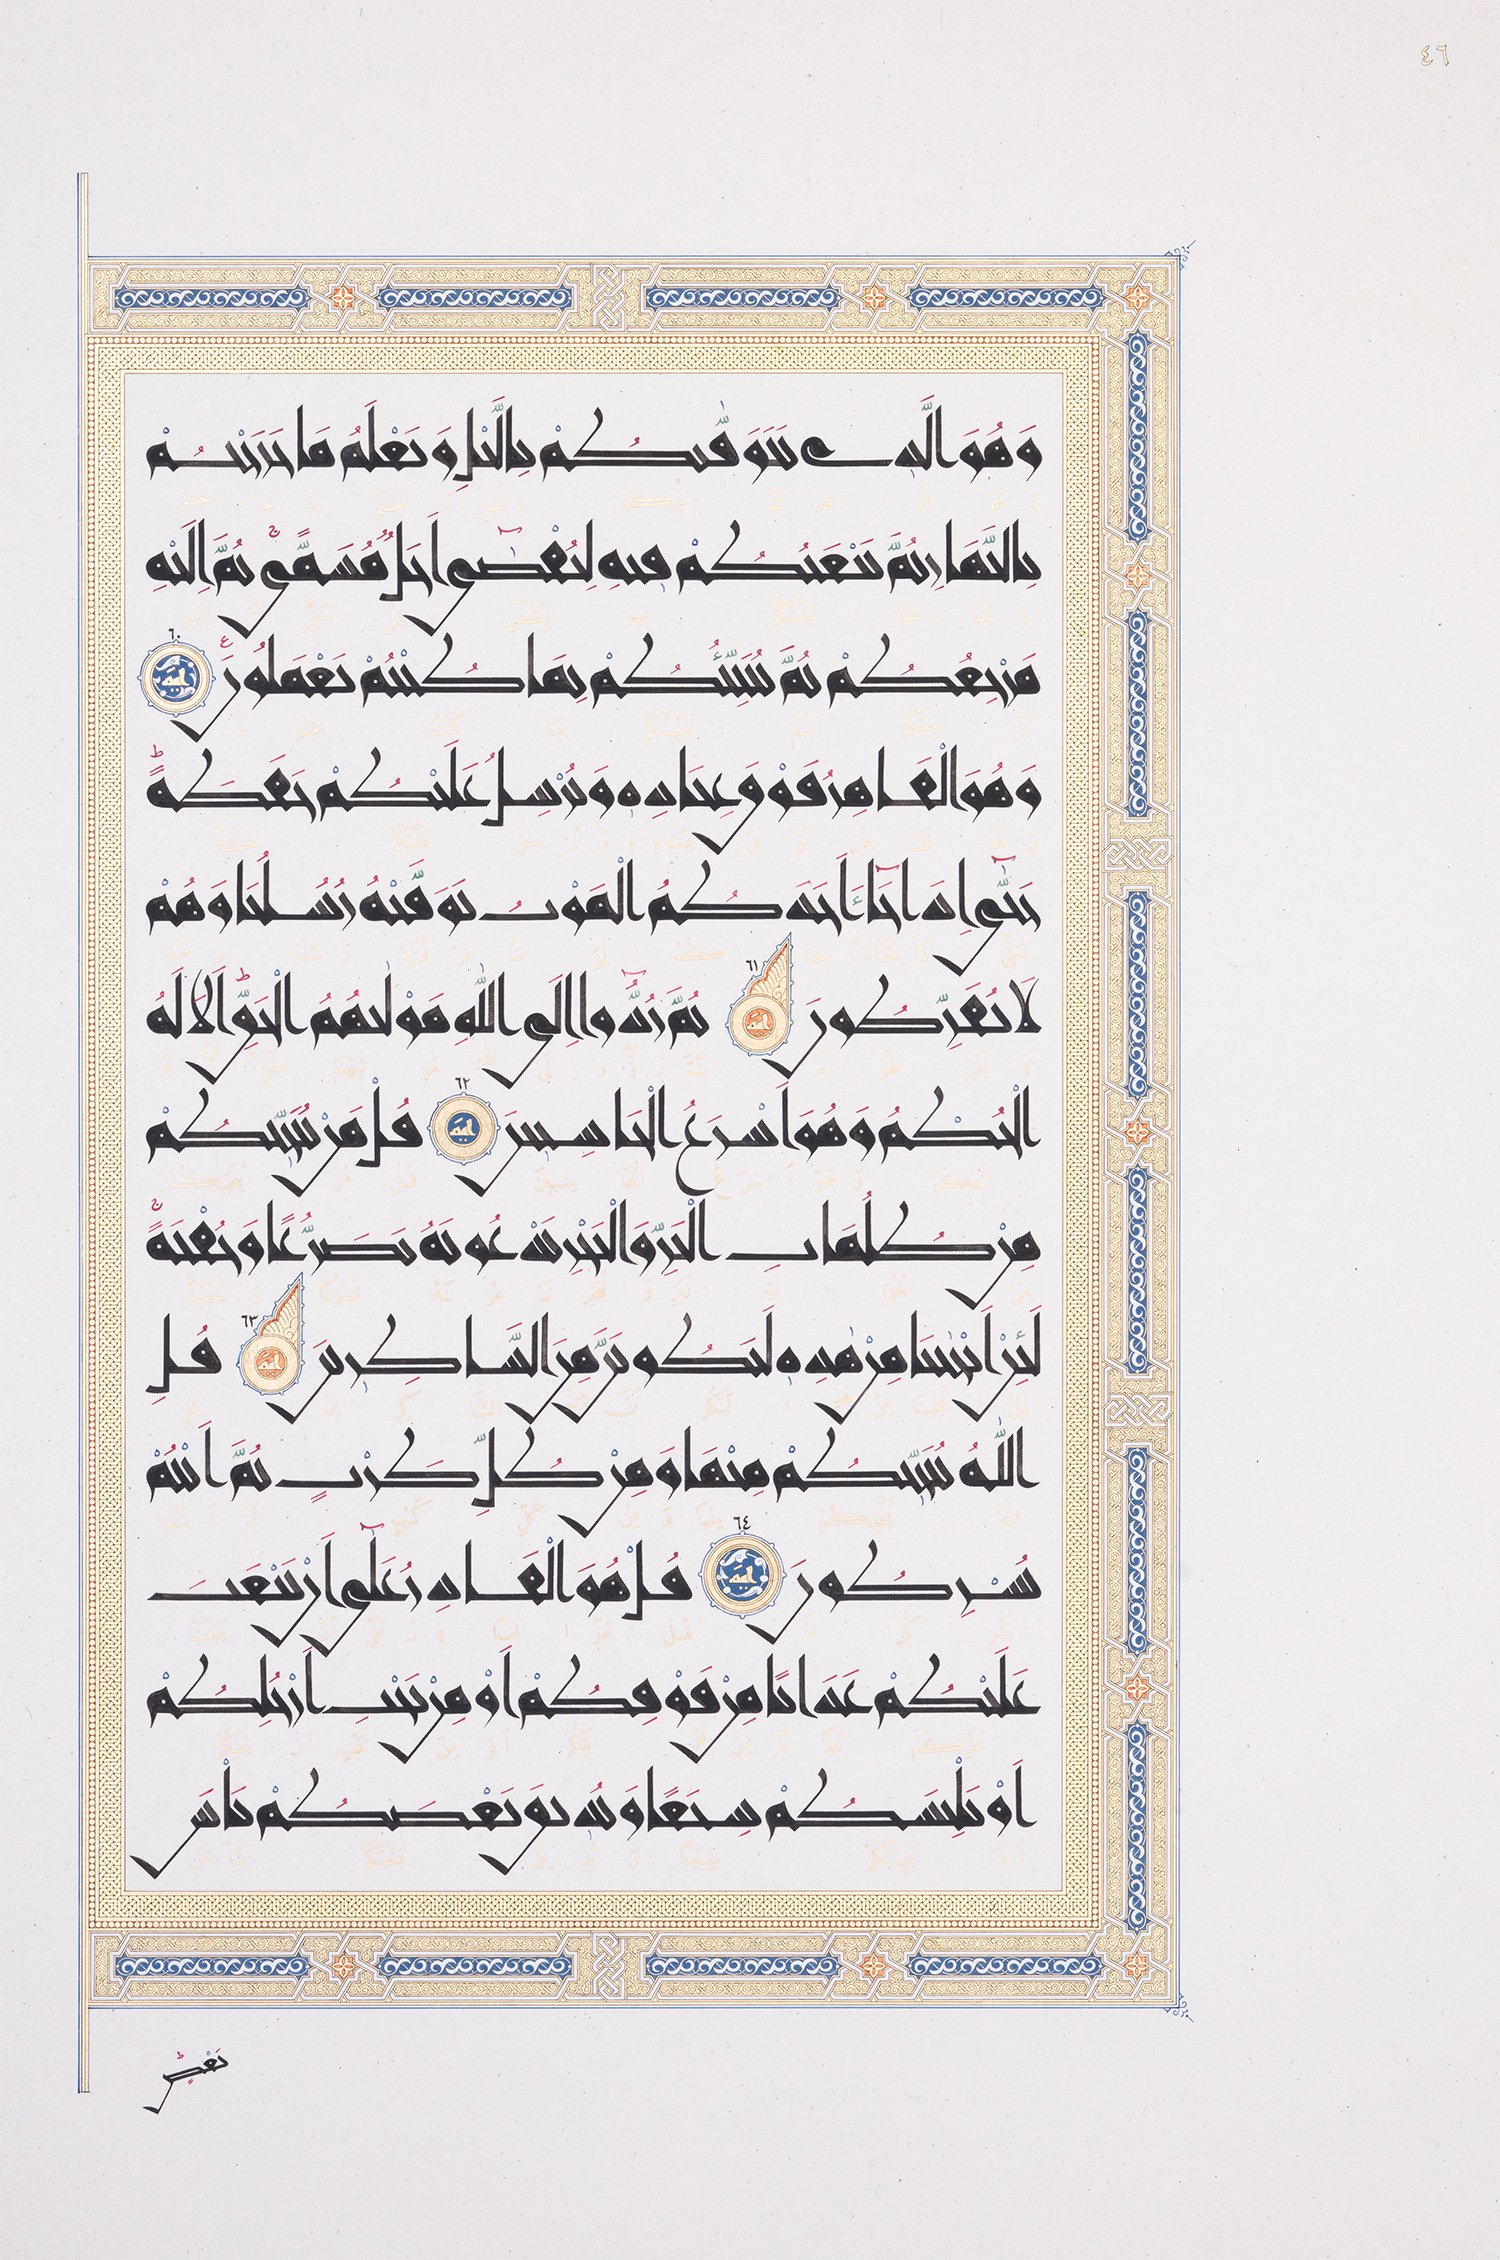 ٤٦
وَهُوَ الَّذِي يَتَوَفَّىٰكُمْ بِالَّيْلِ وَيَعْلَمُ مَا جَرَحْتُمْ
بِالنَّهَارِ ثُمَّ يَبْعَثُكُمْ فِيهِ لِيُقْضَىٰٓ أَجَلٌ مُسَمًّى ۖ ثُمَّ إِلَيْهِ
مَرْجِعُكُمْ ثُمَّ يُنَبِّئُكُمْ بِمَا كُنْتُمْ تَعْمَلُونَ ٦٠
وَهُوَ الْقَاهِرُ فَوْقَ عِبَادِهِ وَيُرْسِلُ عَلَيْكُمْ حَفَظَةً
حَتَّىٰٓ إِذَا جَآءَ أَحَدَكُمُ الْمَوْتُ تَوَفَّتْهُ رُسُلُنَا وَهُمْ
لَا يُفَرِّطُونَ ٦١ ثُمَّ رُدُّوٓا إِلَى اللّٰهِ مَوْلٰىهُمُ الْحَقِّ أَلَا لَهُ
الْحُكْمُ وَهُوَ أَسْرَعُ الْحَاسِبِينَ ٦٢ قُلْ مَنْ يُنَجِّيكُمْ
مِنْ ظُلُمَاتِ الْبَرِّ وَالْبَحْرِ تَدْعُونَهُ تَضَرُّعًا وَخُفْيَةً
لَئِنْ أَنْجٰىنَا مِنْ هٰذِهِ لَنَكُونَنَّ مِنَ الشَّاكِرِينَ ٦٣ قُلِ
اللّٰهُ يُنَجِّيكُمْ مِنْهَا وَمِنْ كُلِّ كَرْبٍ ثُمَّ أَنْتُمْ
تُشْرِكُونَ ٦٤ قُلْ هُوَ الْقَادِرُ عَلَىٰٓ أَنْ يَبْعَثَ
عَلَيْكُمْ عَذَابًا مِنْ فَوْقِكُمْ أَوْ مِنْ تَحْتِ أَرْجُلِكُمْ
أَوْ يَلْبِسَكُمْ شِيَعًا وَيُذِيقَ بَعْضَكُمْ بَأْسَ
بَعْضٍ